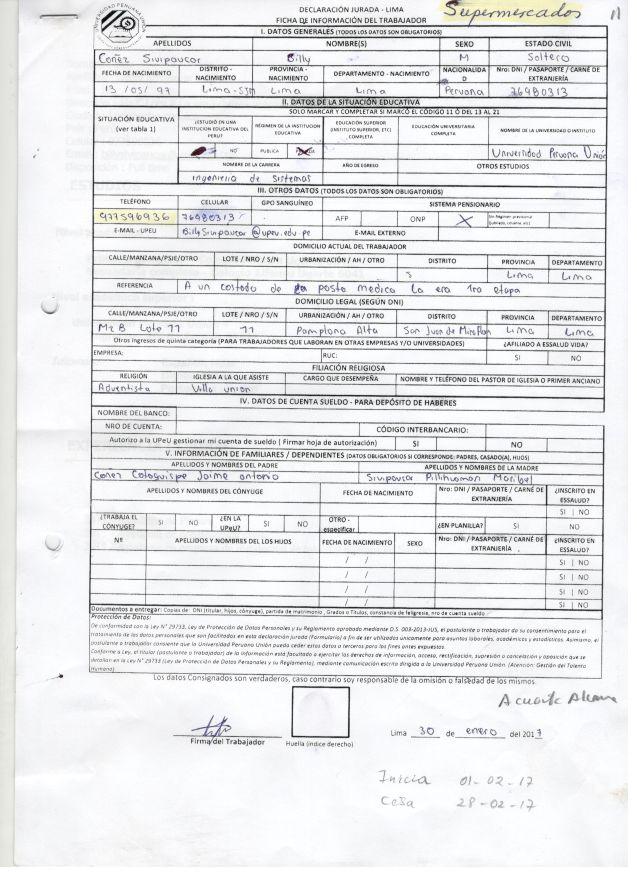 DECLARACIÓN JURADA - LIMA
FICHA DE INFORMACIÓN DEL TRABAJADOR
Supermercados
11
I. DATOS GENERALES (TODOS LOS DATOS SON OBLIGATORIOS)
APELLIDOS NOMBRE(S) SEXO ESTADO CIVIL
Cañez Sivipaucar Billy M Soltero
FECHA DE NACIMIENTO DISTRITO - NACIMIENTO PROVINCIA - NACIMIENTO DEPARTAMENTO - NACIMIENTO NACIONALIDAD Nro: DNI / PASAPORTE / CARNÉ DE EXTRANJERÍA
13 / 05 / 97 Lima-SJM Lima Lima Peruana 76980313
II. DATOS DE LA SITUACIÓN EDUCATIVA
SOLO MARCAR Y COMPLETAR SI MARCÓ EL CÓDIGO 11 Ó DEL 13 AL 21
SITUACIÓN EDUCATIVA (ver tabla 1) ¿ESTUDIÓ EN UNA INSTITUCIÓN EDUCATIVA DEL PERU? RÉGIMEN DE LA INSTITUCION EDUCATIVA EDUCACIÓN SUPERIOR (INSTITUTO SUPERIOR, ETC) COMPLETA EDUCACIÓN UNIVERSITARIA COMPLETA NOMBRE DE LA UNIVERSIDAD O INSTITUTO
NO PUBLICA Universidad Peruana Unión
NOMBRE DE LA CARRERA AÑO DE EGRESO OTROS ESTUDIOS
Ingenieria de Sistemas
III. OTROS DATOS (TODOS LOS DATOS SON OBLIGATORIOS)
TELÉFONO CELULAR GPO SANGUÍNEO SISTEMA PENSIONARIO
977596936 76980313 AFP ONP X
E-MAIL - UPEU BillySivipaucar@upeu.edu.pe E-MAIL EXTERNO
DOMICILIO ACTUAL DEL TRABAJADOR
CALLE/MANZANA/PSJE/OTRO LOTE / NRO / S/N URBANIZACIÓN / AH / OTRO DISTRITO PROVINCIA DEPARTAMENTO
Lima Lima
REFERENCIA A un costado de posta medica la era 1ra etapa
DOMICILIO LEGAL (SEGÚN DNI)
CALLE/MANZANA/PSJE/OTRO LOTE / NRO / S/N URBANIZACIÓN / AH / OTRO DISTRITO PROVINCIA DEPARTAMENTO
Mz B Lote 11 11 Pamplona Alta San Juan de Miraflor Lima Lima
Otros ingresos de quinta categoría (PARA TRABAJADORES QUE LABORAN EN OTRAS EMPRESAS Y/O UNIVERSIDADES) ¿AFILIADO A ESSALUD VIDA?
EMPRESA: RUC: SI NO
FILIACIÓN RELIGIOSA
RELIGIÓN IGLESIA A LA QUE ASISTE CARGO QUE DESEMPEÑA NOMBRE Y TELÉFONO DEL PASTOR DE IGLESIA O PRIMER ANCIANO
Adventista Villa union
IV. DATOS DE CUENTA SUELDO - PARA DEPÓSITO DE HABERES
NOMBRE DEL BANCO:
NRO DE CUENTA: CÓDIGO INTERBANCARIO:
Autorizo a la UPeU gestionar mi cuenta de sueldo ( Firmar hoja de autorización) SI NO
V. INFORMACIÓN DE FAMILIARES / DEPENDIENTES (DATOS OBLIGATORIOS SI CORRESPONDE: PADRES, CASADO(A), HIJOS)
APELLIDOS Y NOMBRES DEL PADRE APELLIDOS Y NOMBRES DE LA MADRE
Cañez Jaime Antonio Sivipaucar Pillihuaman Maribel
APELLIDOS Y NOMBRES DEL CÓNYUGE FECHA DE NACIMIENTO Nro: DNI / PASAPORTE / CARNÉ DE EXTRANJERÍA ¿INSCRITO EN ESSALUD?
SI | NO
¿TRABAJA EL CÓNYUGE? SI NO ¿EN LA UPeU? SI NO OTRO - especificar ¿EN PLANILLA? SI NO
Nº APELLIDOS Y NOMBRES DEL LOS HIJOS FECHA DE NACIMIENTO SEXO Nro: DNI / PASAPORTE / CARNÉ DE EXTRANJERÍA ¿INSCRITO EN ESSALUD?
/ / SI | NO
/ / SI | NO
/ / SI | NO
/ / SI | NO
Documentos a entregar: Copias de: DNI (titular, hijos, cónyuge), partida de matrimonio, Grados o Títulos, constancia de feligresía, nro de cuenta sueldo
Protección de Datos:
De conformidad con la Ley N° 29733, Ley de Protección de Datos Personales y su Reglamento aprobado mediante D.S. 003-2013-JUS, el postulante o trabajador da su consentimiento para el
tratamiento de los datos personales que son facilitados en esta declaración jurada (Formulario) a fin de ser utilizados únicamente para asuntos laborales, académicos y estadísticos. Asimismo, el
postulante o trabajador consiente que la Universidad Peruana Unión pueda ceder estos datos a terceros para los fines antes expuestos.
Conforme a Ley, el titular (postulante o trabajador) de la información está facultado a ejercitar los derechos de información, acceso, rectificación, supresión o cancelación y oposición que se
detallan en la Ley N° 29733 (Ley de Protección de Datos Personales y su Reglamento), mediante comunicación escrita dirigida a la Universidad Peruana Unión. (Atención: Gestión del Talento
Humano)
Los datos Consignados son verdaderos, caso contrario soy responsable de la omisión o falsedad de los mismos.
Firma del Trabajador
Huella (índice derecho)
Lima 30 de enero del 2017
Inicia 01-02-17
Cesa 28-02-17